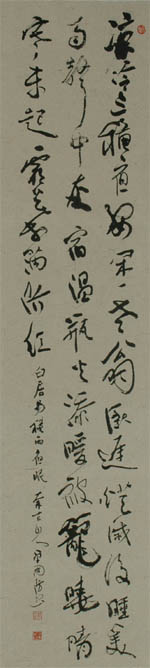 涼冷三穐夜安閑一老翁臥遲燈滅後睡美
雨聲中灰宿温瓶火添暖被籠曉晴
寒未起霜葉滿階紅
白居易秋雨夜眠